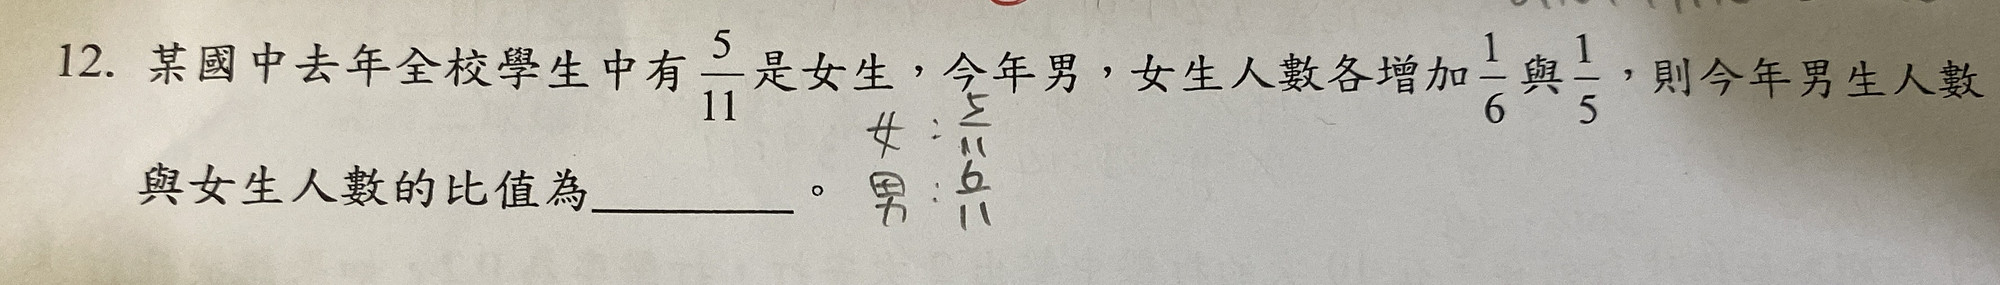 12. 某國中去年全校學生中有 5/11 是女生，今年男，女生人數各增加 1/6 與 1/5，則今年男生人數
與女生人數的比值為________。
女：5/11
男：6/11